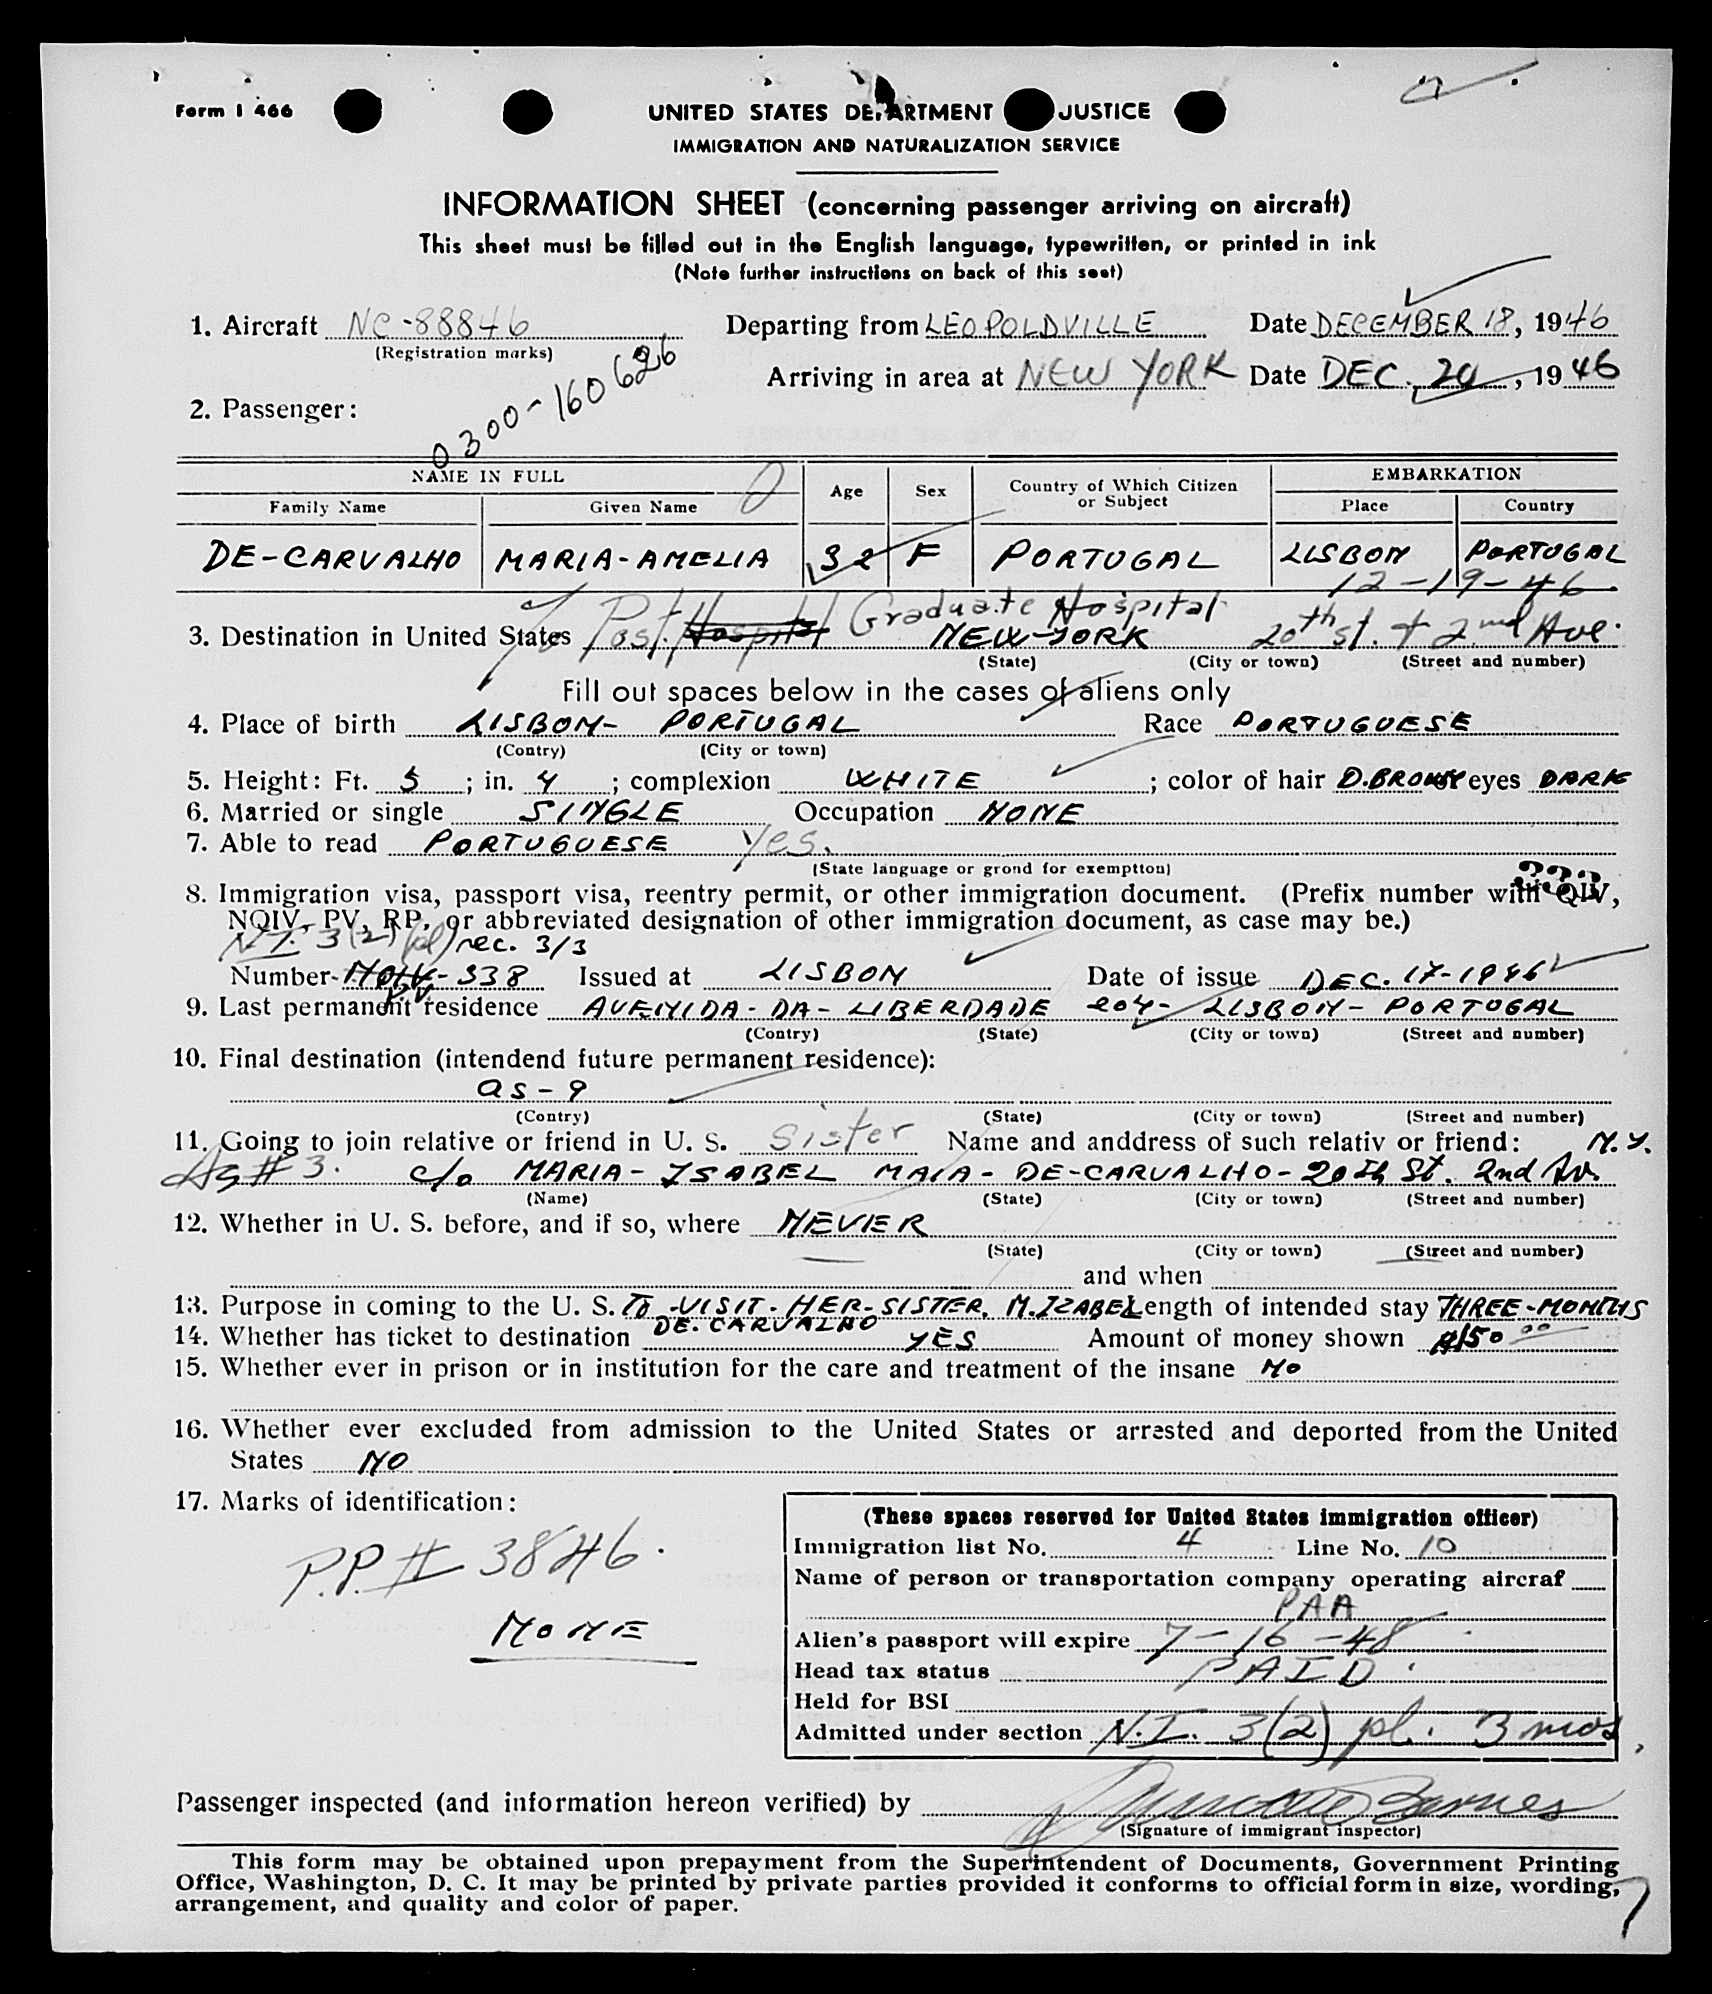 Form I 466
UNITED STATES DEPARTMENT JUSTICE
IMMIGRATION AND NATURALIZATION SERVICE
INFORMATION SHEET (concerning passenger arriving on aircraft)
This sheet must be filled out in the English language, typewritten, or printed in ink
(Note further instructions on back of this seet)
1. Aircraft NC-88846 Departing from LEOPOLDVILLE Date DECEMBER 18, 1946
(Registration marks)
Arriving in area at NEW YORK Date DEC. 20, 1946
2. Passenger:
0300-160626
NAME IN FULL Age Sex Country of Which Citizen or Subject EMBARKATION
Family Name Given Name Place Country
DE-CARVALHO MARIA-AMELIA 32 F PORTUGAL LISBON PORTUGAL
12-19-46
Post Graduate Hospital
3. Destination in United States NEW-YORK 20th St. + 2nd Ave.
(State) (City or town) (Street and number)
Fill out spaces below in the cases of aliens only
4. Place of birth LISBON- PORTUGAL Race PORTUGUESE
(Contry) (City or town)
5. Height: Ft. 5; in. 4; complexion WHITE; color of hair D.BROWN eyes DARK
6. Married or single SINGLE Occupation NONE
7. Able to read PORTUGUESE Yes.
(State language or grond for exemption)
8. Immigration visa, passport visa, reentry permit, or other immigration document. (Prefix number with QIV,
NQIV, PV, RP, or abbreviated designation of other immigration document, as case may be.)
N.I. 3(2) (pl) rec. 3/3
Number- 338 Issued at LISBON Date of issue DEC. 17-1946
PV
9. Last permanent residence AVENIDA-DA-LIBERDADE 204- LISBON- PORTUGAL
(Contry) (State) (City or town) (Street and number)
10. Final destination (intendend future permanent residence):
as-9
(Contry) (State) (City or town) (Street and number)
11. Going to join relative or friend in U. S. Sister Name and anddress of such relativ or friend: N.Y.
As # 3. c/o MARIA-ISABEL MAIA-DE-CARVALHO-20th St. 2nd Av.
(Name) (State) (City or town) (Street and number)
12. Whether in U. S. before, and if so, where NEVER
(State) (City or town) (Street and number)
and when
13. Purpose in coming to the U. S. TO-VISIT-HER-SISTER. M.IZABEL Length of intended stay THREE-MONTHS
DE. CARVALHO
14. Whether has ticket to destination YES Amount of money shown $150 00
15. Whether ever in prison or in institution for the care and treatment of the insane NO
16. Whether ever excluded from admission to the United States or arrested and deported from the United
States NO
17. Marks of identification:
P.P. # 3846.
NONE
(These spaces reserved for United States immigration officer)
Immigration list No. 4 Line No. 10
Name of person or transportation company operating aircraf
PAA
Alien's passport will expire 7-16-48
Head tax status PAID.
Held for BSI
Admitted under section N.I. 3(2) pl. 3 mos.
Passenger inspected (and information hereon verified) by Barnes
(Signature of immigrant inspector)
This form may be obtained upon prepayment from the Superintendent of Documents, Government Printing
Office, Washington, D. C. It may be printed by private parties provided it conforms to official form in size, wording,
arrangement, and quality and color of paper.